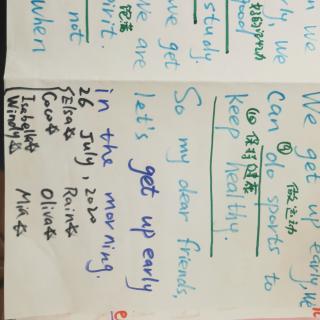 n we
rly, we
good
study.
we get
We are
irit.
not
when
We get up early, we
④ 做运动
can do sports to
保持健康
keep healthy.
So my dear friends,
let's get up early
in the morning.
26 July, 2020
Elsa Rain
Coco Oliva
Isabella Mia
Windy